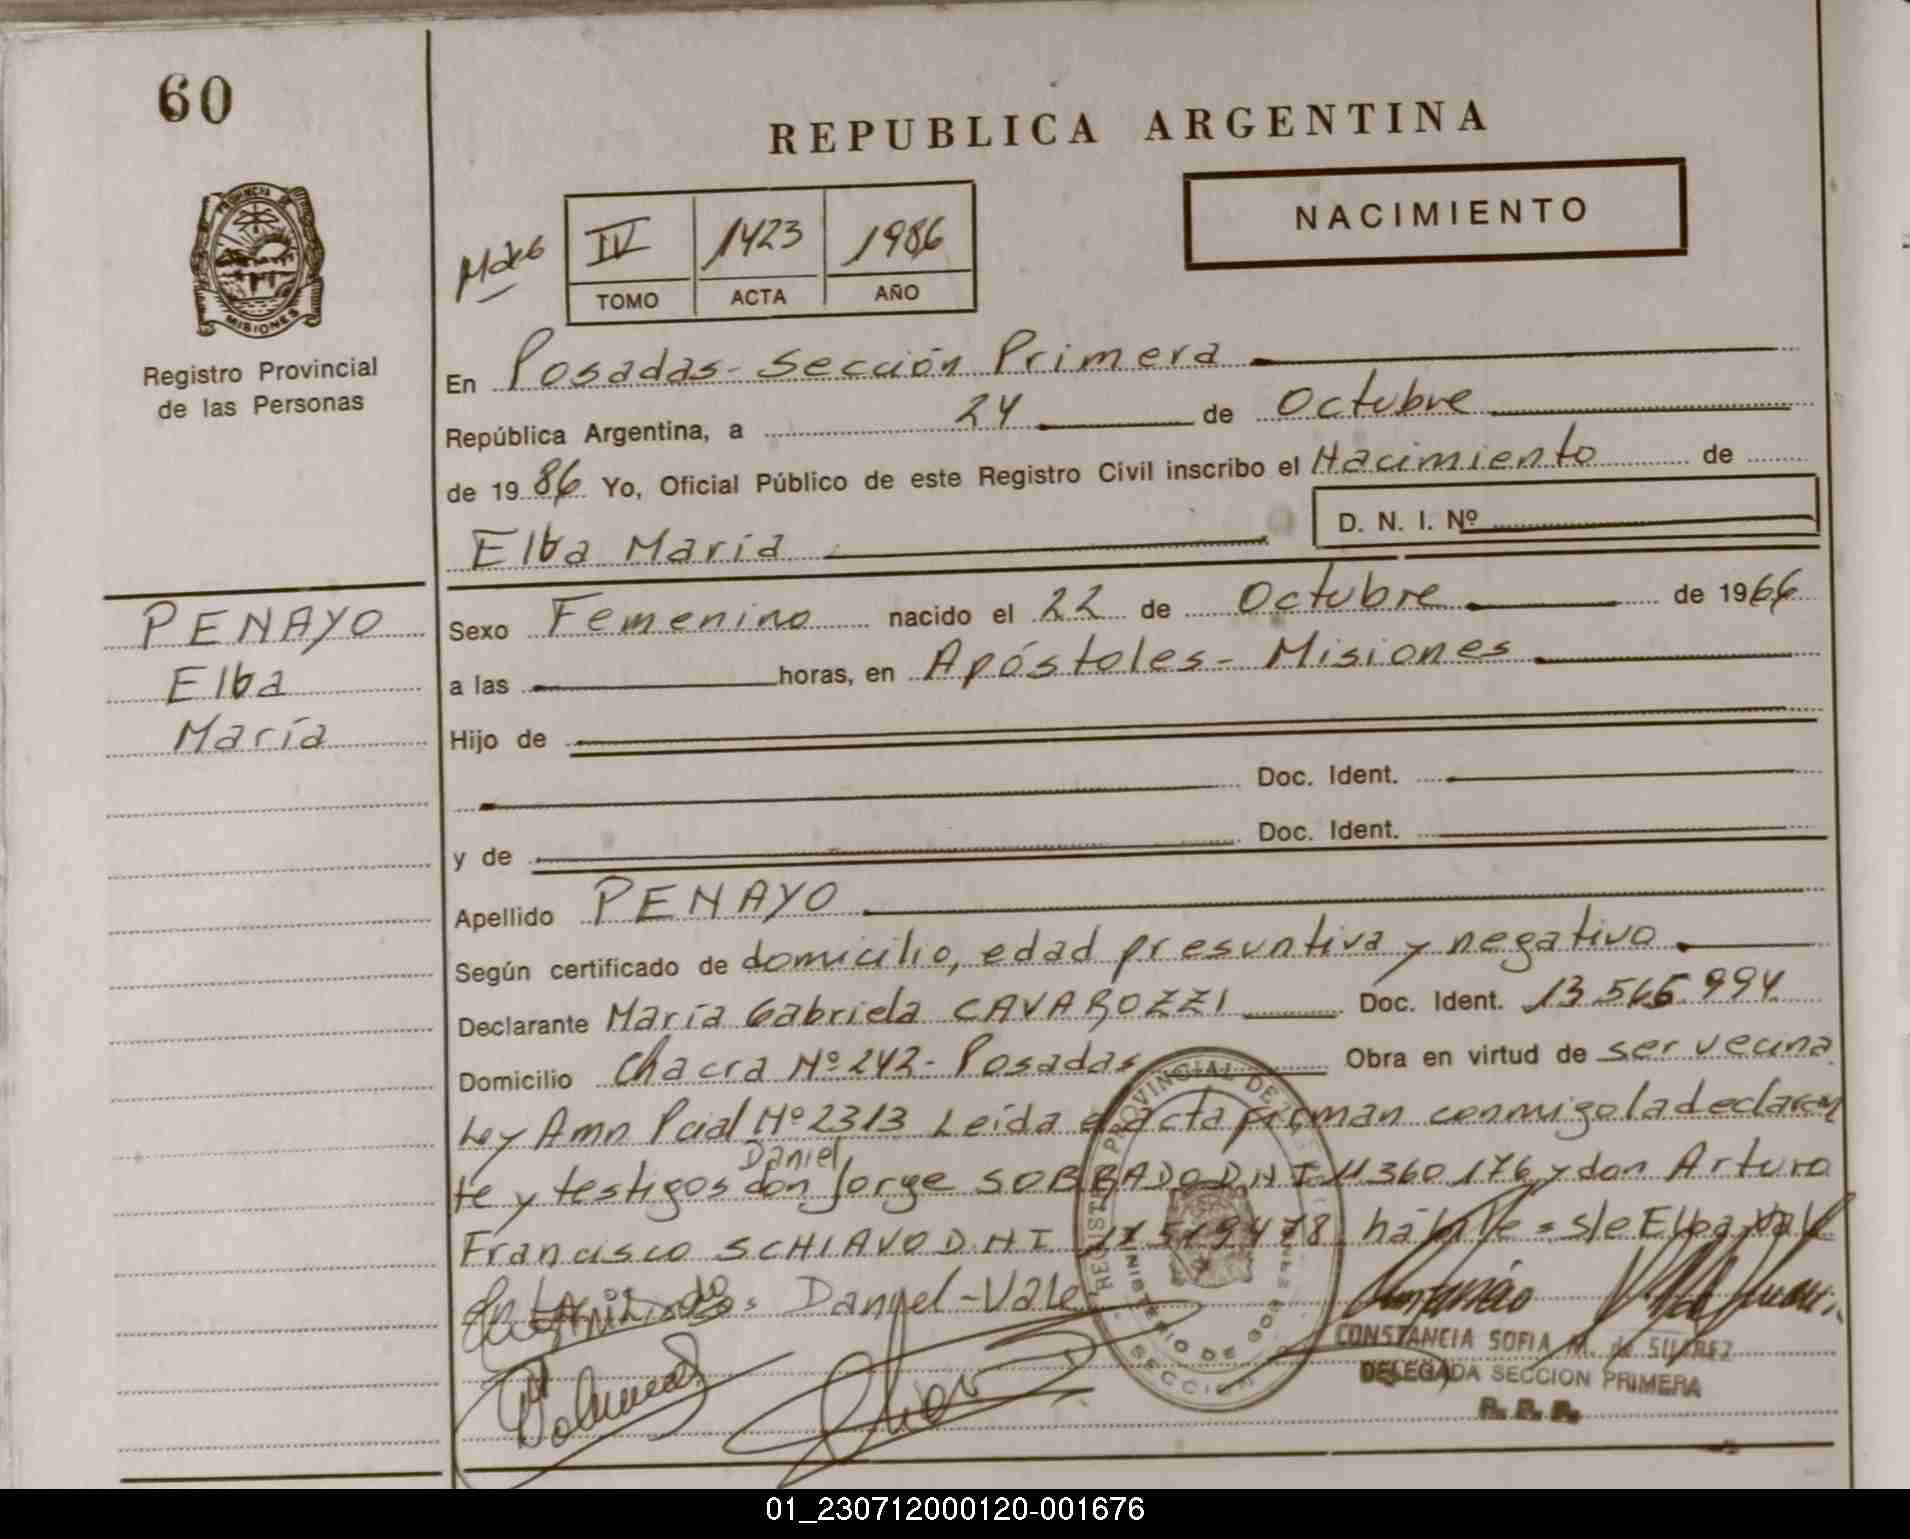 60
REPUBLICA ARGENTINA
NACIMIENTO
PROVINCIA DE
MISIONES
Registro Provincial
de las Personas
IV 1423 1986
TOMO ACTA AÑO
En Posadas - Sección Primera
República Argentina, a 24 de Octubre
de 1986 Yo, Oficial Público de este Registro Civil inscribo el Nacimiento de
Elba María D. N. I. Nº
PENAYO
Elba
María
Sexo Femenino nacido el 22 de Octubre de 1966
a las horas, en Apóstoles - Misiones
Hijo de
Doc. Ident.
y de Doc. Ident.
Apellido PENAYO
Según certificado de domicilio, edad presuntiva y negativo
Declarante María Gabriela CAVAROZZI Doc. Ident. 13 565 994
Domicilio Chacra Nº 242 - Posadas Obra en virtud de ser vecina
Ley Amn Pcial Nº 2313 Leída el acta firman conmigo la declaran
te y testigos don Daniel Jorge SOBRADO DNI 11 360 176 y don Arturo
Francisco SCHIAVO D.N.I hábile = s/e Elba Vale
Daniel - Vale
REGISTRO PROVINCIAL DE
MINISTERIO DE
SECCION
CONSTANCIA SOFIA M. de SUAREZ
DELEGADA SECCION PRIMERA
R. P. P.
01_230712000120-001676